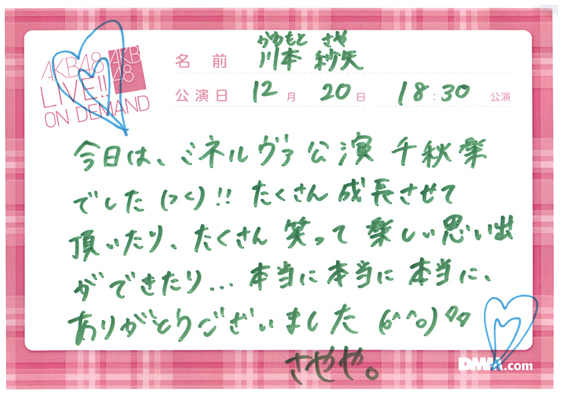 AKB48
LIVE!!
ON DEMAND
AKB
48
かわもと さや
名前 川本 紗矢
公演日 12月 20日 18:30 公演
今日は、ミネルヴァ公演 千秋楽
でした(>く)!! たくさん 成長させて
頂いたり、たくさん 笑って 楽しい思い出
ができたり... 本当に本当に 本当に、
ありがとうございました (o^^o)
さやや。
DMM.com